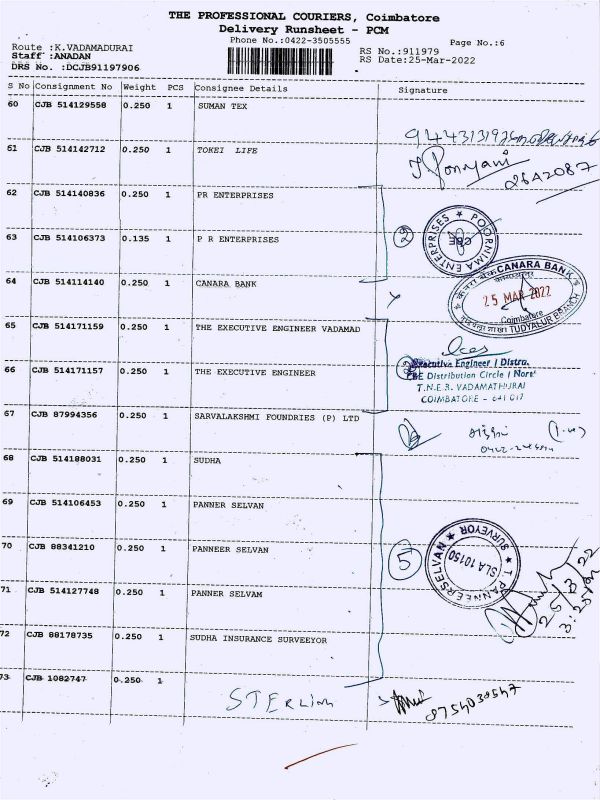 THE PROFESSIONAL COURIERS, Coimbatore
Delivery Runsheet - PCM
Phone No.:0422-3505555
Page No.:6
Route :K.VADAMADURAI
Staff :ANADAN
DRS No. :DCJB91197906
RS No.:911979
RS Date:25-Mar-2022
S No Consignment No Weight PCS Consignee Details Signature
60 CJB 514129558 0.250 1 SUMAN TEX
61 CJB 514142712 0.250 1 TOKEI LIFE
26A2087
62 CJB 514140836 0.250 1 PR ENTERPRISES
63 CJB 514106373 0.135 1 P R ENTERPRISES
2
POORNIMA ENTERPRISES
CBE
64 CJB 514114140 0.250 1 CANARA BANK
CANARA BANK
25 MAR 2022
Coimbatore
TUDYALUR BRANCH
65 CJB 514171159 0.250 1 THE EXECUTIVE ENGINEER VADAMAD
66 CJB 514171157 0.250 1 THE EXECUTIVE ENGINEER
Executive Engineer / Distrn.
CBE Distribution Circle / North
T.N.E.B. VADAMATHURAI
COIMBATORE - 641 017
67 CJB 87994356 0.250 1 SARVALAKSHMI FOUNDRIES (P) LTD
68 CJB 514188031 0.250 1 SUDHA
69 CJB 514106453 0.250 1 PANNER SELVAN
70 CJB 88341210 0.250 1 PANNEER SELVAN
5
T. PANNEERSELVAN
SURVEYOR
SLA 10150
71 CJB 514127748 0.250 1 PANNER SELVAM
25/3/22
72 CJB 88178735 0.250 1 SUDHA INSURANCE SURVEEYOR
73 CJB 1082747 0.250 1 STERLING
8754030547